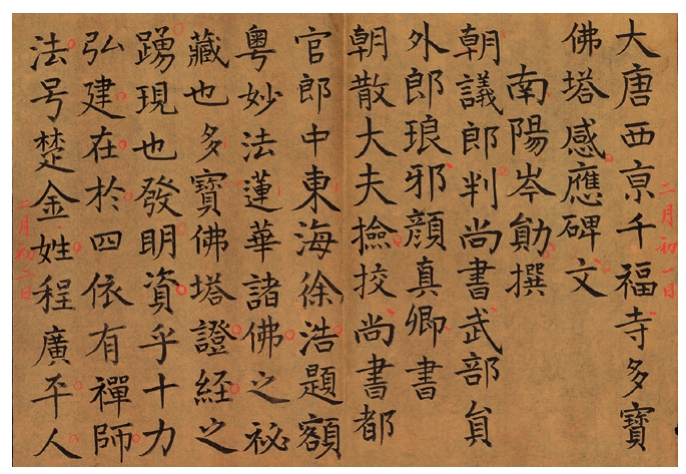 二月初一日
大唐西亰千福寺多寶
佛塔感應碑文
南陽岑勛撰
朝議郎判尚書武部貟
外郎琅邪顏真卿書
朝散大夫撿挍尚書都
官郎中東海徐浩題額
粵妙法蓮華諸佛之祕
藏也多寶佛塔證経之
踴現也發明資乎十力
弘建在於四依有禪師
法号楚金姓程廣平人
二月初二日